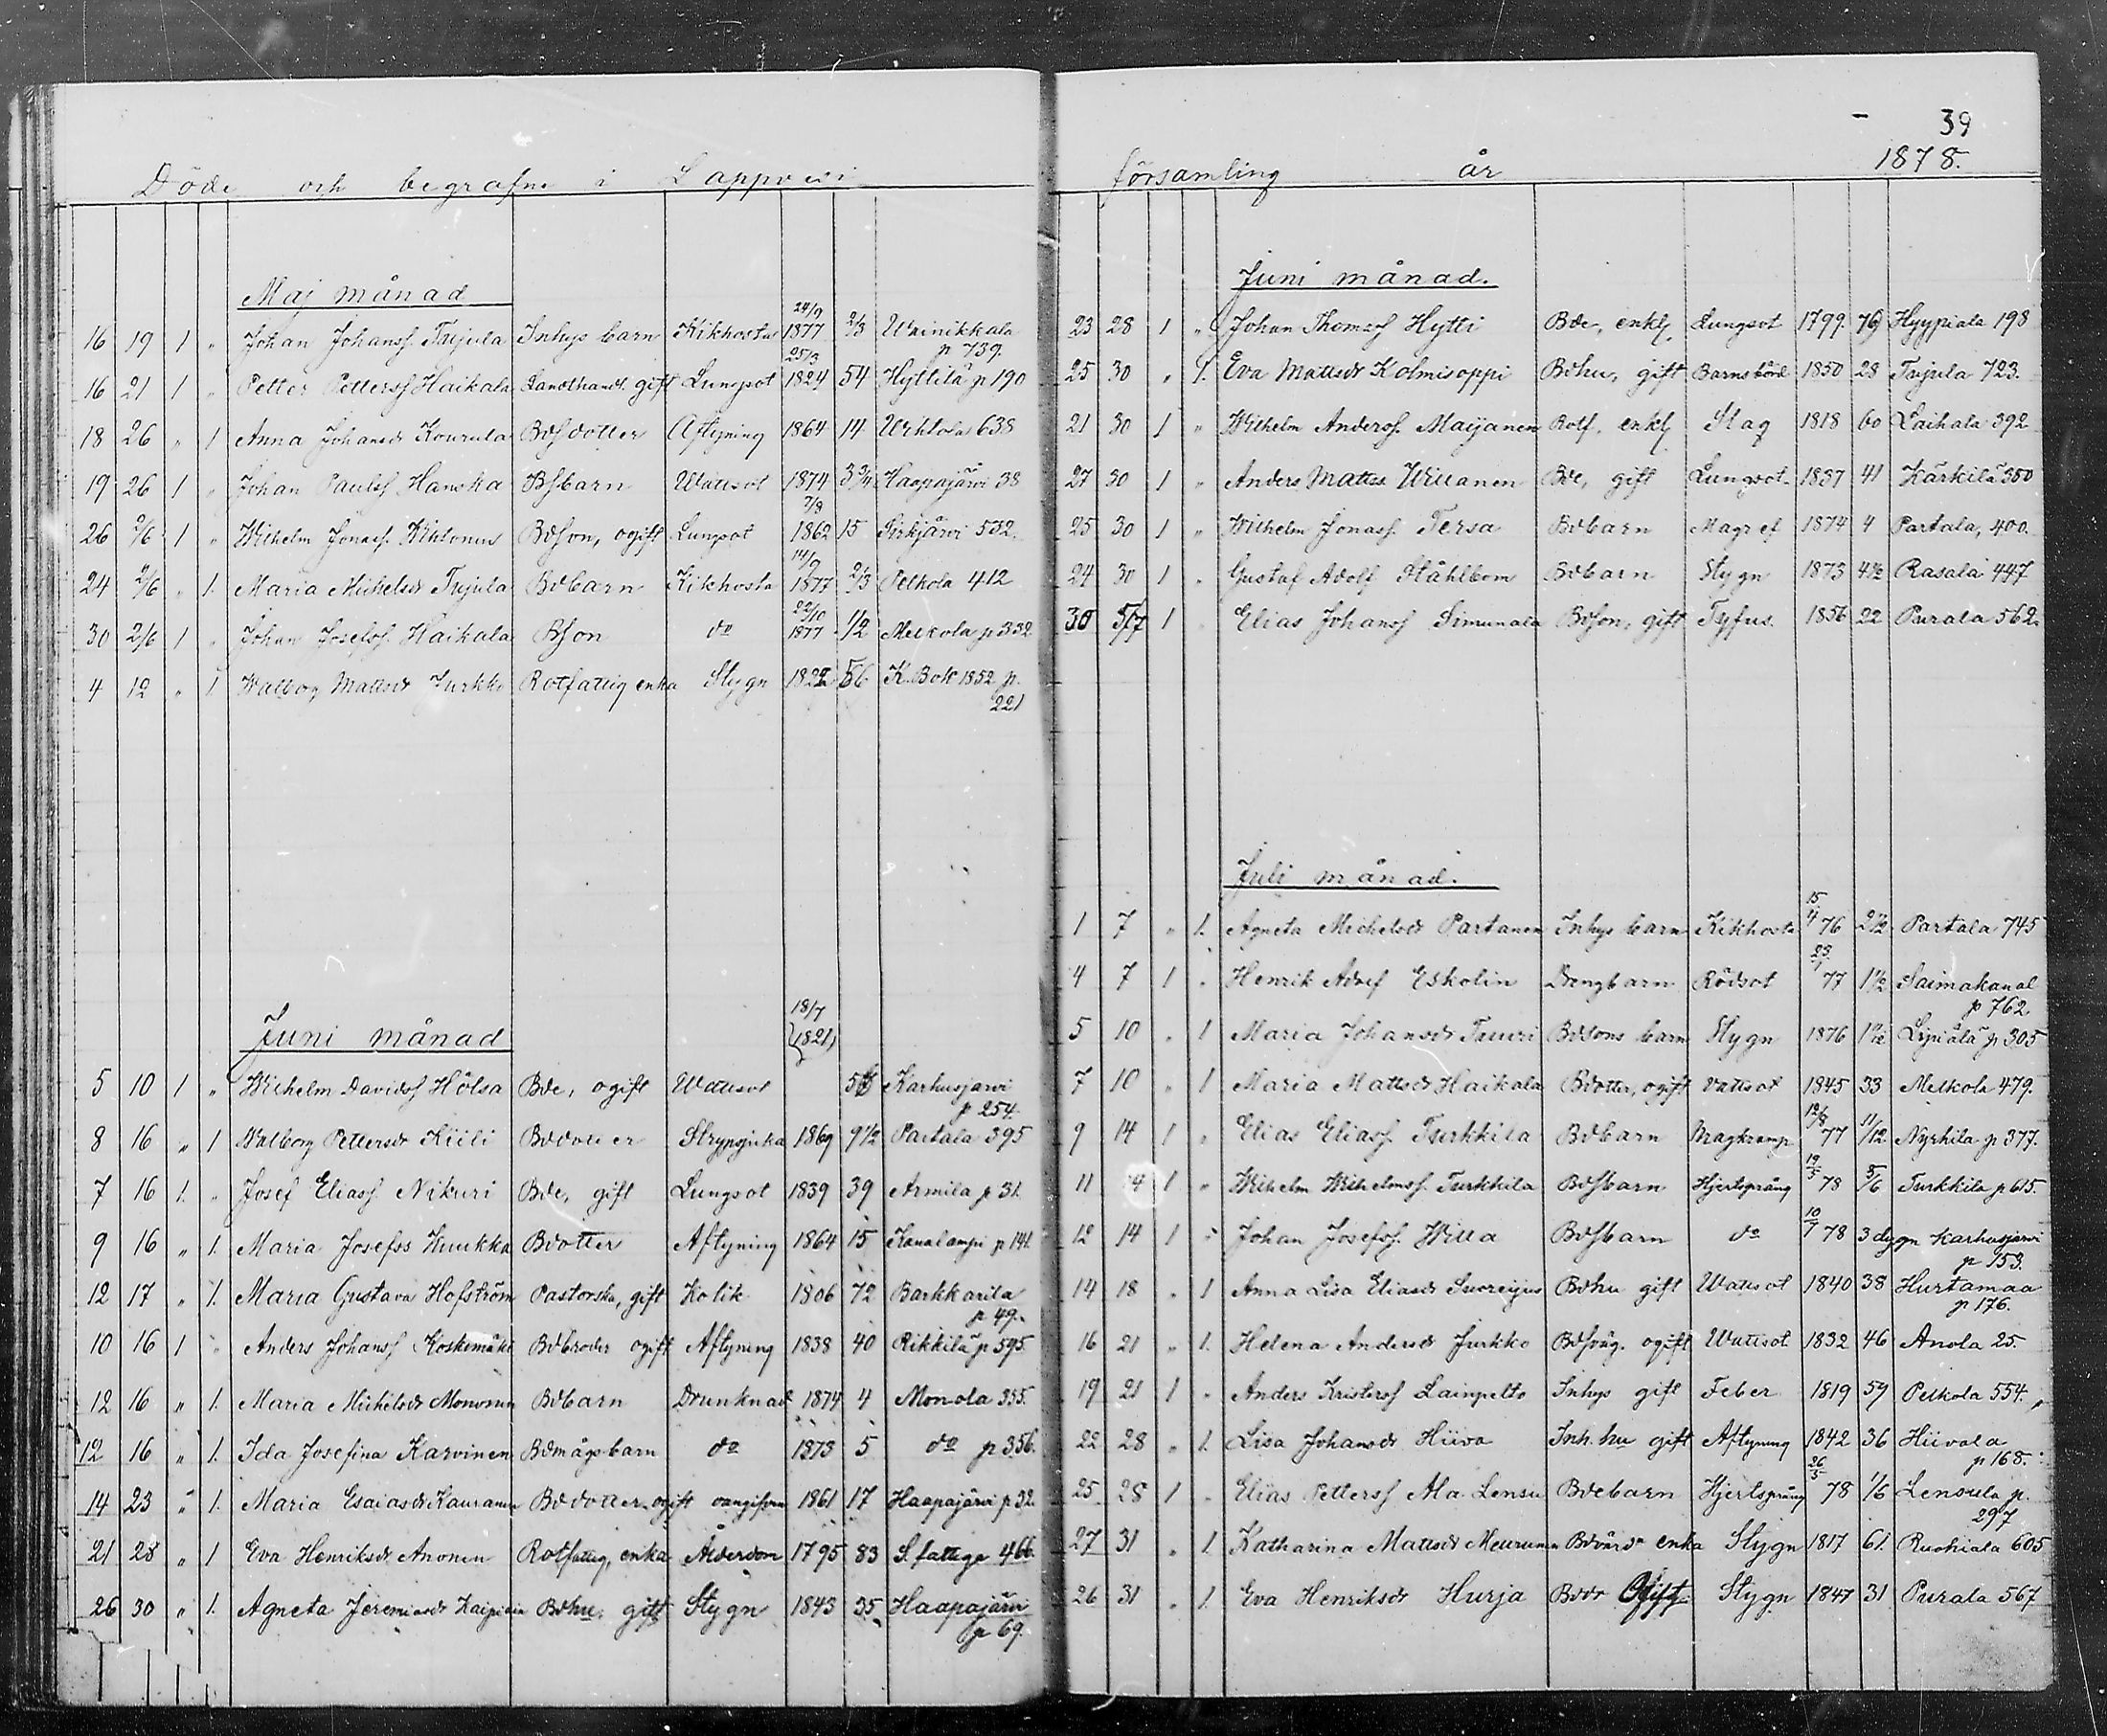 Döde och begrafne i Lappvesi
Maj månad
16 19 1 " Johan Johanss. Tujula Inhys barn Kikhosta 24/9 1877 2/3 Wainikkala p 739.
16 21 1 " Petter Petterss Haikala Landthandl. gift Lungsot 25/3 1824 54 Hyttilä p 190
18 26 " 1 Anna Johansdr Kourula Bdsdotter Aftyning 1864 14 Urhtola 638
19 26 1 " Johan Paulss Hanska Bsbarn Wattsot 1874 3 3/4 Haapajärvi 38
26 2/6 1 " Wilhelm Jonass. Kihlonus Bdson, ogift Lungsot 7/9 1862 15 Sirkjärvi 532.
24 2/6 " 1. Maria Michelsdr Tujula Bdbarn Kikhosta 14/9 1877 2/3 Pelkola 412
30 2/6 1 " Johan Josefss. Haikala Bson do 22/10 1877 1/2 Melkola p 332
4 12 " 1 Walborg Mattsdr Jurkko Rotfattig enka Stygn 1822 56 K. Bok 1852 p. 221
Juni månad
5 10 1 " Wilhelm Davidss Hölsa Bde, ogift Wattsot 18/7 1821 56 Karhusjärvi p 254.
8 16 " 1 Walborg Pettersdr Kiili Bddotter Strypsjuka 1869 9 1/2 Partala 395
7 16 1. " Josef Eliass. Nikuri Bde, gift Lungsot 1839 39 Armila p 31.
9 16 " 1. Maria Josefss Kuukka Bdotter Aftyning 1864 15 Kanalampi p 141.
12 17 " 1. Maria Gustava Hofström Pastorska, gift Kolik 1806 72 Barkkarila p 49.
10 16 1 " Anders Johanss Koskemäki Bdbroder ogift Aftyning 1838 40 Rikkilä p 595.
12 16 " 1. Maria Michelsdr Mononen Bdbarn Drunknad 1874 4 Monola 355.
12 16 " 1. Ida Josefina Karvinen Bdmågsbarn do 1873 5 do p 356.
14 23 " 1. Maria Esaiasdr Kauranen Bddotter ogift oangifven 1861 17 Haapajärvi p 32.
21 28 " 1 Eva Henriksdr Anonen Rotfattig, enka Ålderdom 1795 83 S. fattige 466.
26 30 " 1. Agneta Jeremiasdr Kaipiain Bdhu. gift Stygn 1843 35 Haapajärvi p 69.
39
församling år 1878.
Juni månad.
23 28 1 " Johan Thomess Hytti Bde, enkl. Lungsot 1799. 79 Hyypiala 198
25 30 " 1. Eva Mattsdr Kolmisoppi Bdhu, gift Barnsbörd 1850 28 Tujula 723.
21 30 1 " Wilhelm Anderss. Maijanen Rotf. enkl Slag 1818 60 Laihala 392
27 30 1 " Anders Mattss Willanen Bde, gift Lungsot 1837 41 Kärkilä 350
25 30 1 " Wilhelm Jonass. Tersa Bdbarn Magref 1874 4 Partala, 400.
24 30 1 " Gustaf Adolf Ståhlbom Bdbarn Stygn 1873 4 1/2 Rasala 447
30 5/7 1 " Elias Johanss Simunala Bdson, gift Tyfus. 1856 22 Purala 562.
Juli månad.
1 7 " 1. Agneta Michelsdr Partanen Inhys barn Kikhosta 15/4 76 2 1/2 Partala 745
4 7 1 " Henrik Adolf Eskolin Drengbarn Rödsot 23/1 77 1 1/2 Saimakanal p 762.
5 10 " 1 Maria Johansdr Tuuri Bdsons barn Stygn 1876 1 1/2 Lyijälä p 305
7 10 " 1 Maria Mattsdr Haikala Bdotter, ogift Vattsot 1845 33 Melkola 479.
9 14 1 " Elias Eliass. Turkkila Bdbarn Magkramp 12/8 77 11/12 Nyrhila p 377.
11 14 1 " Wilhelm Wilhelmss. Turkkila Bdsbarn Hjertsprång 19/5 78 5/6 Turkkila p 615.
12 14 1 " Johan Josefss. Willa Bdsbarn do 10/7 78 3 dygn Karhusjärvi p 153.
14 18 " 1 Anna Lisa Eliasdr Suoreijus Bdhu gift Wattsot 1840 38 Hurtamaa p 176.
16 21 " 1. Helena Andersdr Jurkko Bdsväg. ogift Wattsot 1832 46 Anola 25.
19 21 1 " Anders Kristerss Lainpelto Inhys gift Feber 1819 59 Pelkola 554.
22 28 " 1. Lisa Johansdr Hiiva Inh. hu gift Aftyning 1842 36 Hiivala p 168.
25 28 1 " Elias Petterss Ala Lensu Bdebarn Hjertsprång 26/5 78 1/6 Lensula p. 297
27 31 " 1. Katharina Mattsdr Meurunen enka Stygn 1817 61. Ruohiala 605
26 31 " 1. Eva Henriksdr Hurja Bddr Ogift Stygn 1847 31 Purala 567